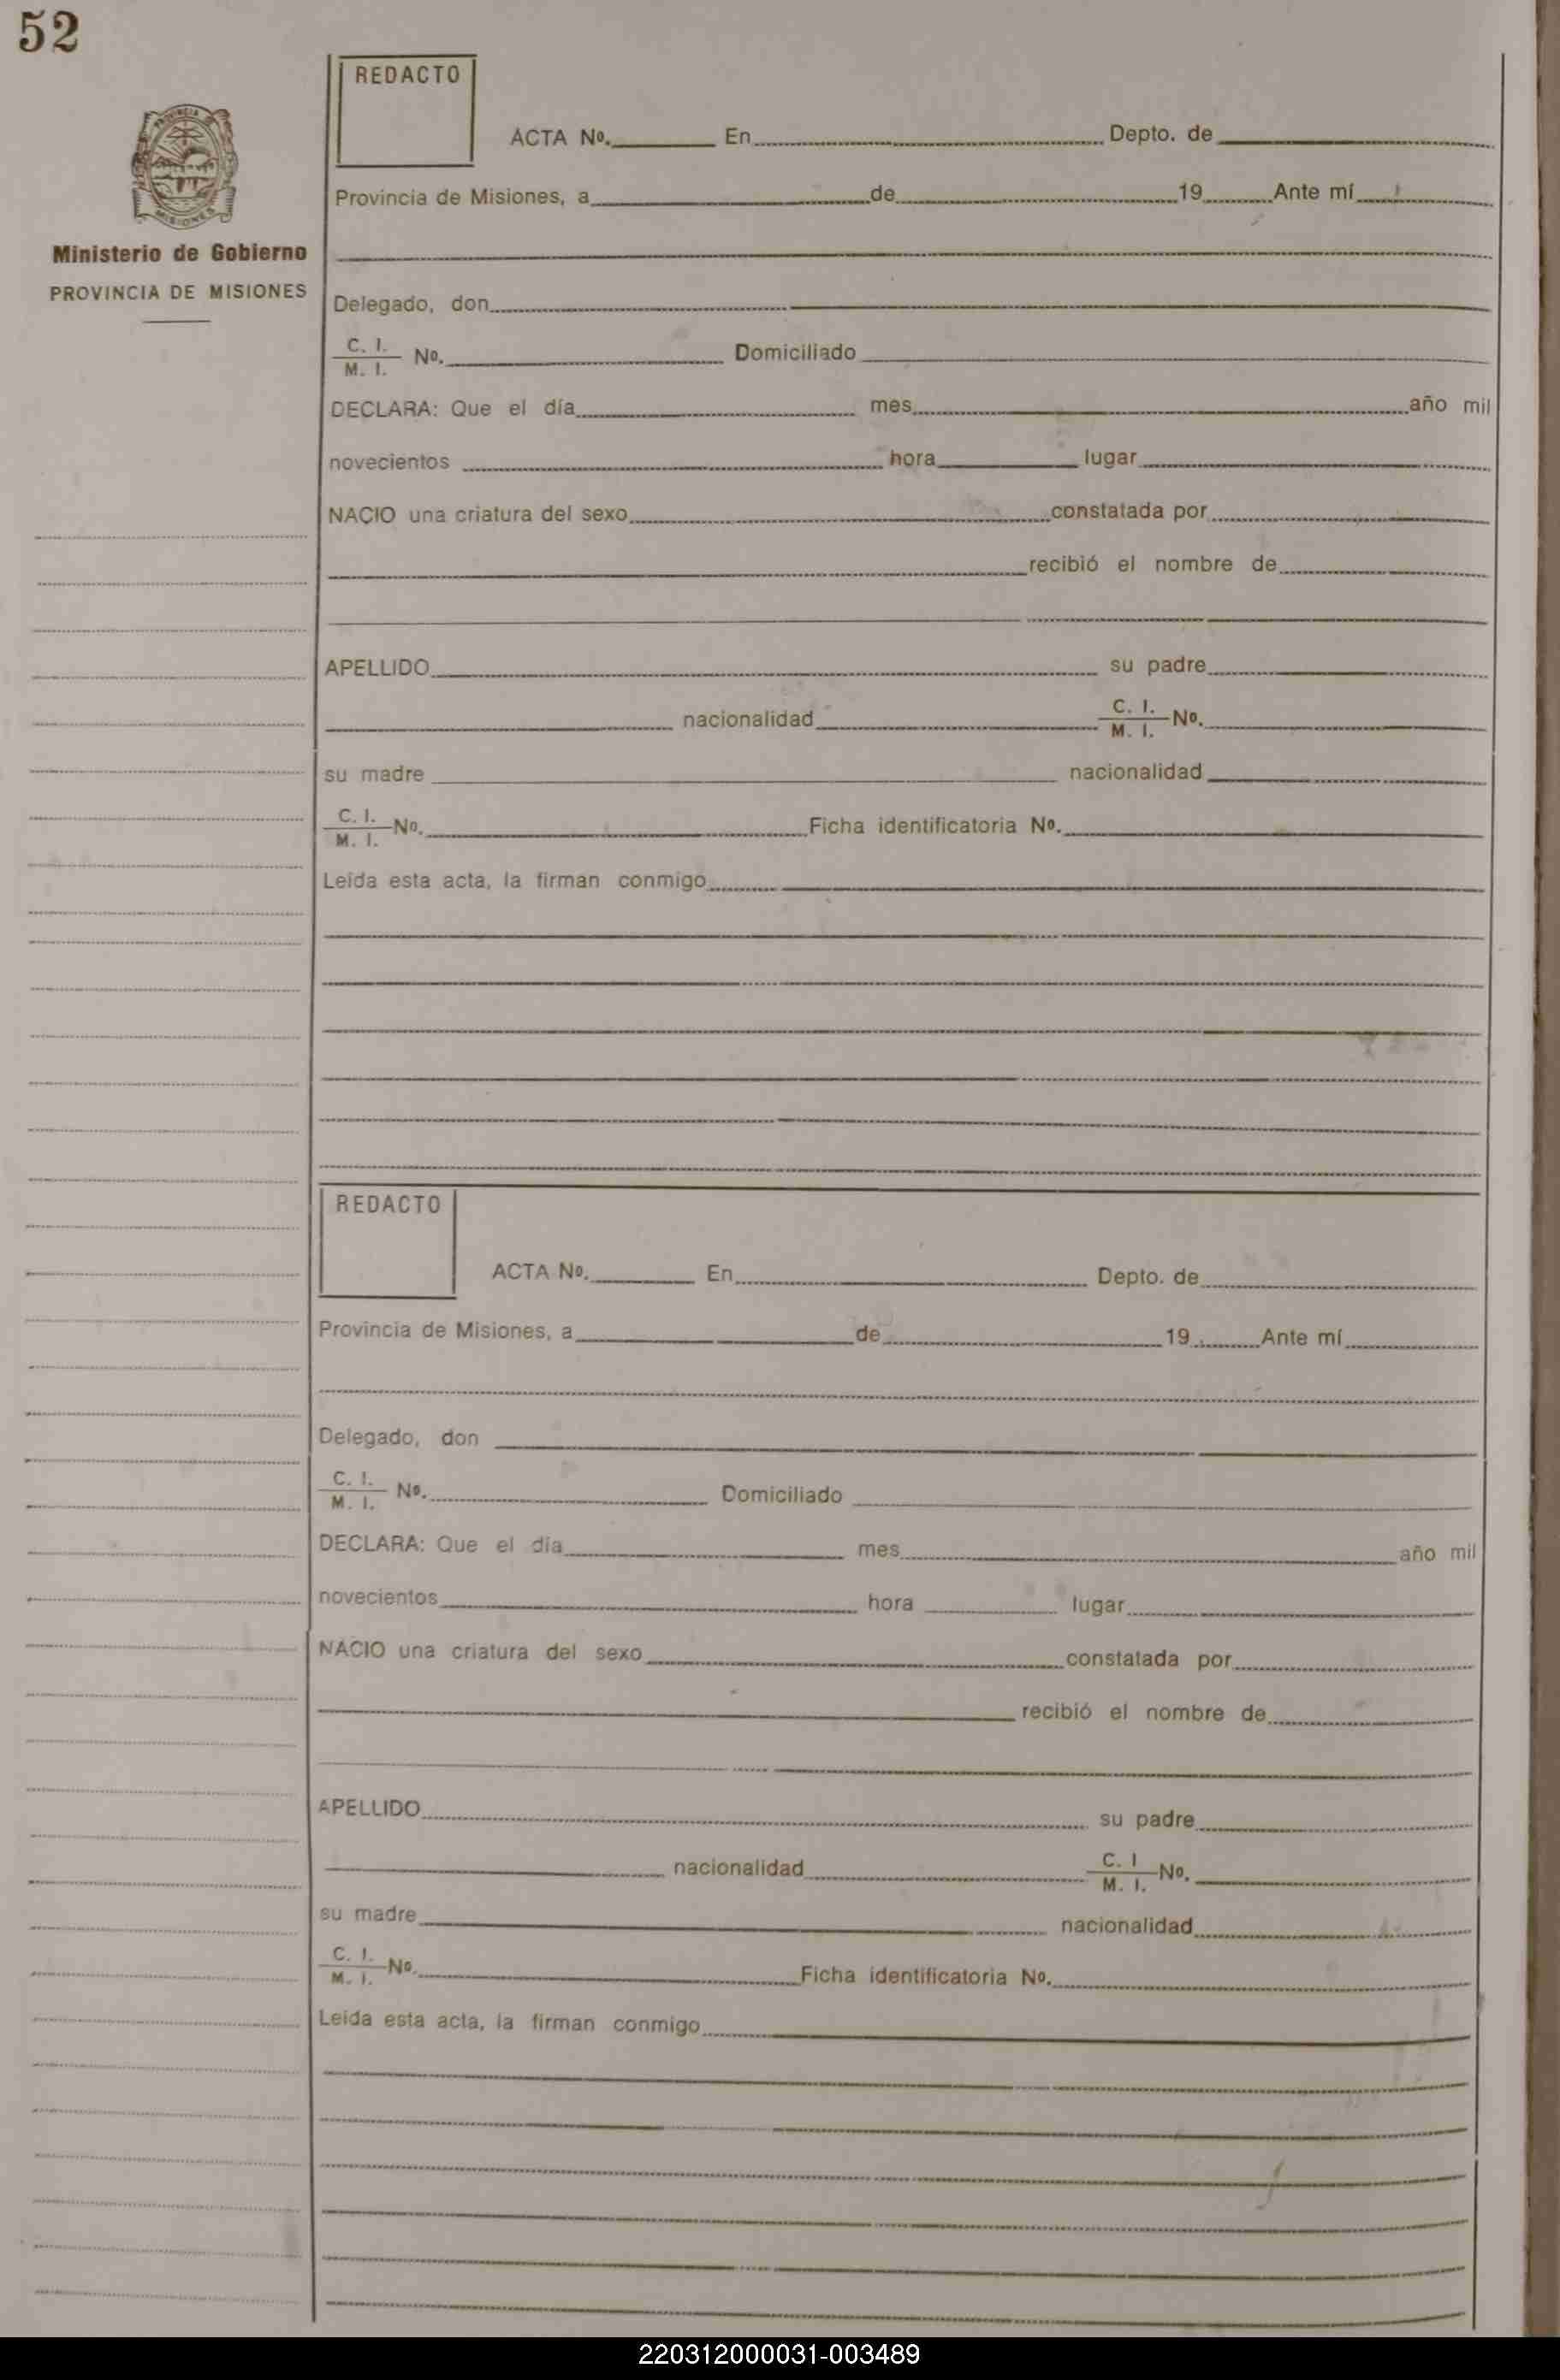 52
REDACTO
PROVINCIA
MISIONES
ACTA Nº. En Depto. de
Provincia de Misiones, a de 19 Ante mí
Ministerio de Gobierno
PROVINCIA DE MISIONES
Delegado, don
C. I.
M. I. Nº. Domiciliado
DECLARA: Que el día mes año mil
novecientos hora lugar
NACIO una criatura del sexo constatada por
recibió el nombre de
APELLIDO su padre
nacionalidad C. I.
M. I. Nº.
su madre nacionalidad
C. I.
M. I. Nº. Ficha identificatoria Nº.
Leída esta acta, la firman conmigo
REDACTO
ACTA Nº. En Depto. de
Provincia de Misiones, a de 19 Ante mí
Delegado, don
C. I.
M. I. Nº. Domiciliado
DECLARA: Que el día mes año mil
novecientos hora lugar
NACIO una criatura del sexo constatada por
recibió el nombre de
APELLIDO su padre
nacionalidad C. I
M. I. Nº.
su madre nacionalidad
C. I.
M. I. Nº. Ficha identificatoria Nº.
Leída esta acta, la firman conmigo
220312000031-003489